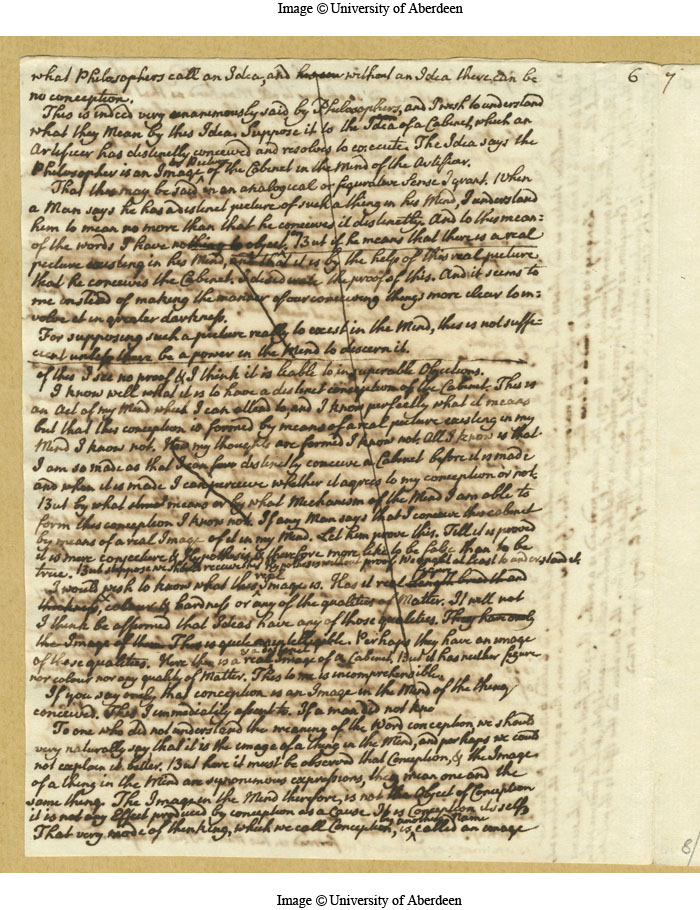 Image © University of Aberdeen
6 7
what Philosophers call an Idea, and without an Idea there can be
no conception.
This is indeed very unanemously said by Philosophers, and I wish to understand
what they Mean by this Idea. Suppose it to be the Idea of a Cabinet, which an
Artificer has distinctly conceived and resolves to execute. The Idea says the
or Picture
Philosopher is an Image of the Cabinet in the Mind of the Artificer.
That this may be said in an analogical or figurative Sense I grant. When
a Man says he has a distinct picture of such a thing in his Mind, I understand
him to mean no more than that he conceives it distinctly. And to this mean=
of the words I have nothing to object. But if he means that there is a real
picture existing in his Mind, and that it is by the help of this real picture
that he conceives the Cabinet. I desiderate the proof of this. And it seems to
me instead of making the manner of our conceiving things more clear to in=
volve it in greater darkness.
For supposing such a picture really to exist in the Mind, this is not suffi=
cient unless there be a power in the Mind to discern it.
of this I see no proof & I think it is liable to insuperable Objections.
I know well what it is to have a distinct conception of the Cabinet. This is
an Act of my Mind which I can attend to, and I know perfectly what it means
but that this conception is formed by means of a real picture existing in my
Mind I know not. How my thoughts are formed I know not. All I know is that
I am so made as that I can distinctly conceive a Cabinet before it is made
and when it is made I can perceive whether it agrees to my conception or not.
But by what means or by what Mechanism of the Mind I am able to
form this conception I know not. If any Man says that I conceive this cabinet
by means of a real Image of it in my Mind. Let him prove this. Till it is proved
it is mere conjecture & Hypothesis & therefore more like to be false than to be
true. But suppose we should receive this Hypothesis without proof, We ought at least to understand it.
real
I would wish to know what this Image is. Has it real length breadth and
thickness, colour & hardness or any of the qualities of Matter. It will not
I think be affirmed that Ideas have any of those qualities. They have only
the Image of them. This is quite unintelligible. Perhaps they have an image
of those qualities. Here then is a real Image of a Cabinet, But it has neither figure
nor colour nor any quality of Matter. This to me is incomprehensible.
If you say only, that conception is an Image in the Mind of the thing
conceived. This I immediatly assent to. If a man did not kno
To one who did not understand the meaning of the Word conception, we should
very naturally say that it is the image of a thing in the Mind, and perhaps we could
not explain it better. But here it must be observed that Conception, & the Image
of a thing in the Mind are synonimous expressions, they mean one and the
same thing. The Image in the Mind therefore, is not the Object of Conception
it is not any Effect produced by conception as a Cause. It is Conception itself.
by another Name
That very mode of thinking, which we call Conception, is called an image
8/
Image © University of Aberdeen